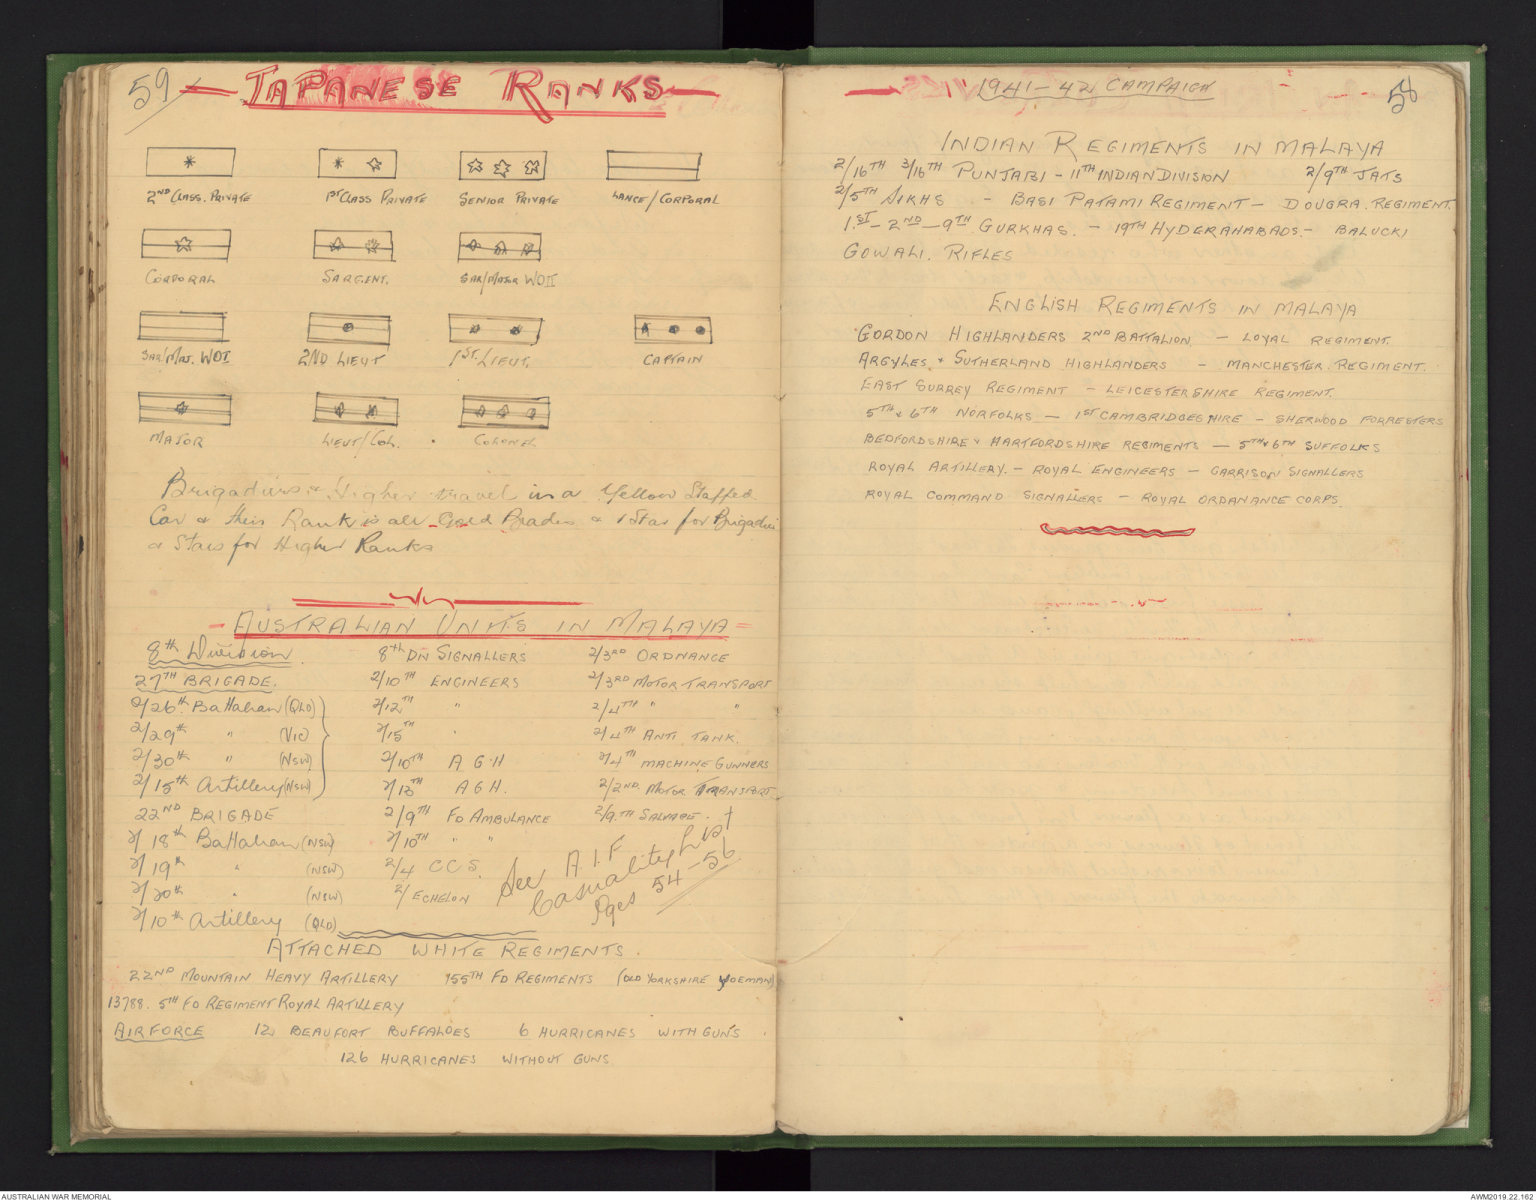 59
JAPANESE RANKS
2ND CLASS. PRIVATE 1ST CLASS PRIVATE SENIOR PRIVATE LANCE/CORPORAL
CORPORAL SARGENT. SAR/MAJOR WOII
SAR/MAJ. WOI 2ND LIEUT 1ST. LIEUT. CAPTAIN
MAJOR LIEUT/COL. COLONEL
Brigadiers & Higher travel in a Yellow Staffed
Car & their Rank is all Gold Brades & 1 Star for Brigadier
& Stars for Higher Ranks
AUSTRALIAN UNITS IN MALAYA
8th Division 8th DN SIGNALLERS 2/3RD ORDNANCE
27TH BRIGADE. 2/10TH ENGINEERS 2/3RD MOTOR TRANSPORT
2/26th Battalian (QLD) 2/12TH " 2/4TH " "
2/29th " (VIC) 2/15TH " 2/4TH ANTI TANK.
2/30th " (NSW) 2/10TH A G H 2/4TH MACHINE GUNNERS
2/15th Artillery (NSW) 2/13TH A G H. 2/2ND. MOTOR TRANSPORT
22ND BRIGADE 2/9TH FD AMBULANCE 2/9.TH SALVAGE.
2/18th Battalian (NSW) 2/10TH " "
2/19th " (NSW) 2/4 C C S.
2/20th " (NSW) 2/ ECHELON
2/10th Artillery (QLD)
See A.I.F
Casuality List
Pges 54-56
ATTACHED WHITE REGIMENTS.
22ND MOUNTAIN HEAVY ARTILLERY 155TH FD REGIMENTS (OLD YORKSHIRE YOEMAN)
1378 8. 5TH FD REGIMENT ROYAL ARTILLERY
AIR FORCE 12 BEAUFORT BUFFALOES 6 HURRICANES WITH GUN'S
126 HURRICANES WITHOUT GUNS
1941-42 CAMPAIGN
58
INDIAN REGIMENTS IN MALAYA
2/16TH 3/16TH PUNJABI - 11TH INDIAN DIVISION 2/9TH JATS
2/5TH SIKHS - BASI PATAMI REGIMENT - DOUGRA. REGIMENT.
1.ST - 2ND - 9TH GURKHAS. - 19TH HYDERAHABADS - BALUCKI
GOWALI. RIFLES
ENGLISH REGIMENTS IN MALAYA
GORDON HIGHLANDERS 2ND BATTALION. - LOYAL REGIMENT.
ARGYLES. & SUTHERLAND HIGHLANDERS - MANCHESTER. REGIMENT.
EAST SURREY REGIMENT - LEICESTERSHIRE REGIMENT.
5TH & 6TH NORFOLKS - 1ST CAMBRIDGESHIRE - SHERWOOD FORRESTERS
BEDFORDSHIRE & HARTFORDSHIRE REGIMENTS - 5TH & 6TH SUFFOLKS
ROYAL ARTILLERY. - ROYAL ENGINEERS - GARRISON SIGNALLERS
ROYAL COMMAND SIGNALLERS - ROYAL ORDANANCE CORPS.
AUSTRALIAN WAR MEMORIAL
AWM2019.22.162